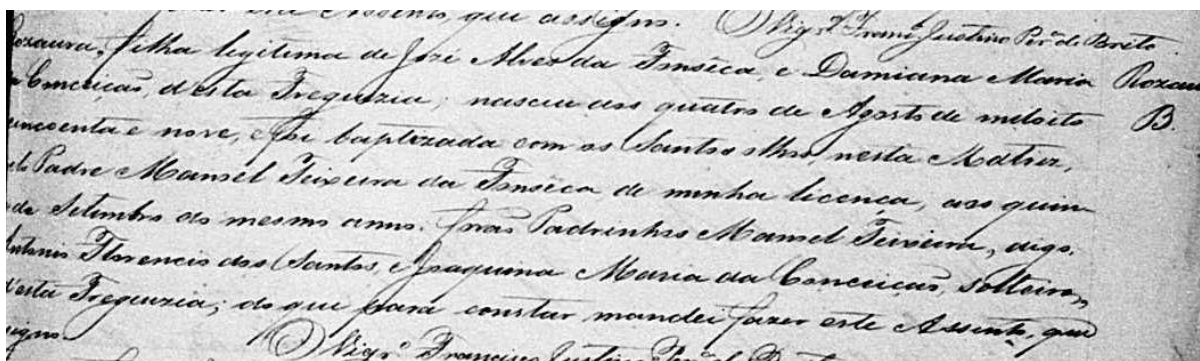 este Assento, que assigno. O Vigr.o Franc.o Justino Per.a de Brito
Rozaura, filha legitima de José Alves da Fonsêca, e Damiana Maria Rozau
Conceição, d'esta Freguezia, nasceu aos quatro de Agosto de mil oito B.
cincoenta e nove, e foi baptizada com os Santos olhos, nesta Matriz,
Padre Manoel Teixeira da Fonsêca, de minha licença, aos quin
de Setembro do mesmo anno. forão Padrinhos Manoel Teixeira, digo,
Antonio Florencio dos Santos, e Joaquina Maria da Conceição, solteiros,
d'esta Freguezia; do que para constar mandei fazer este Assento, que
signo. O Vigr.o Francisco Justino Per.a de Brito